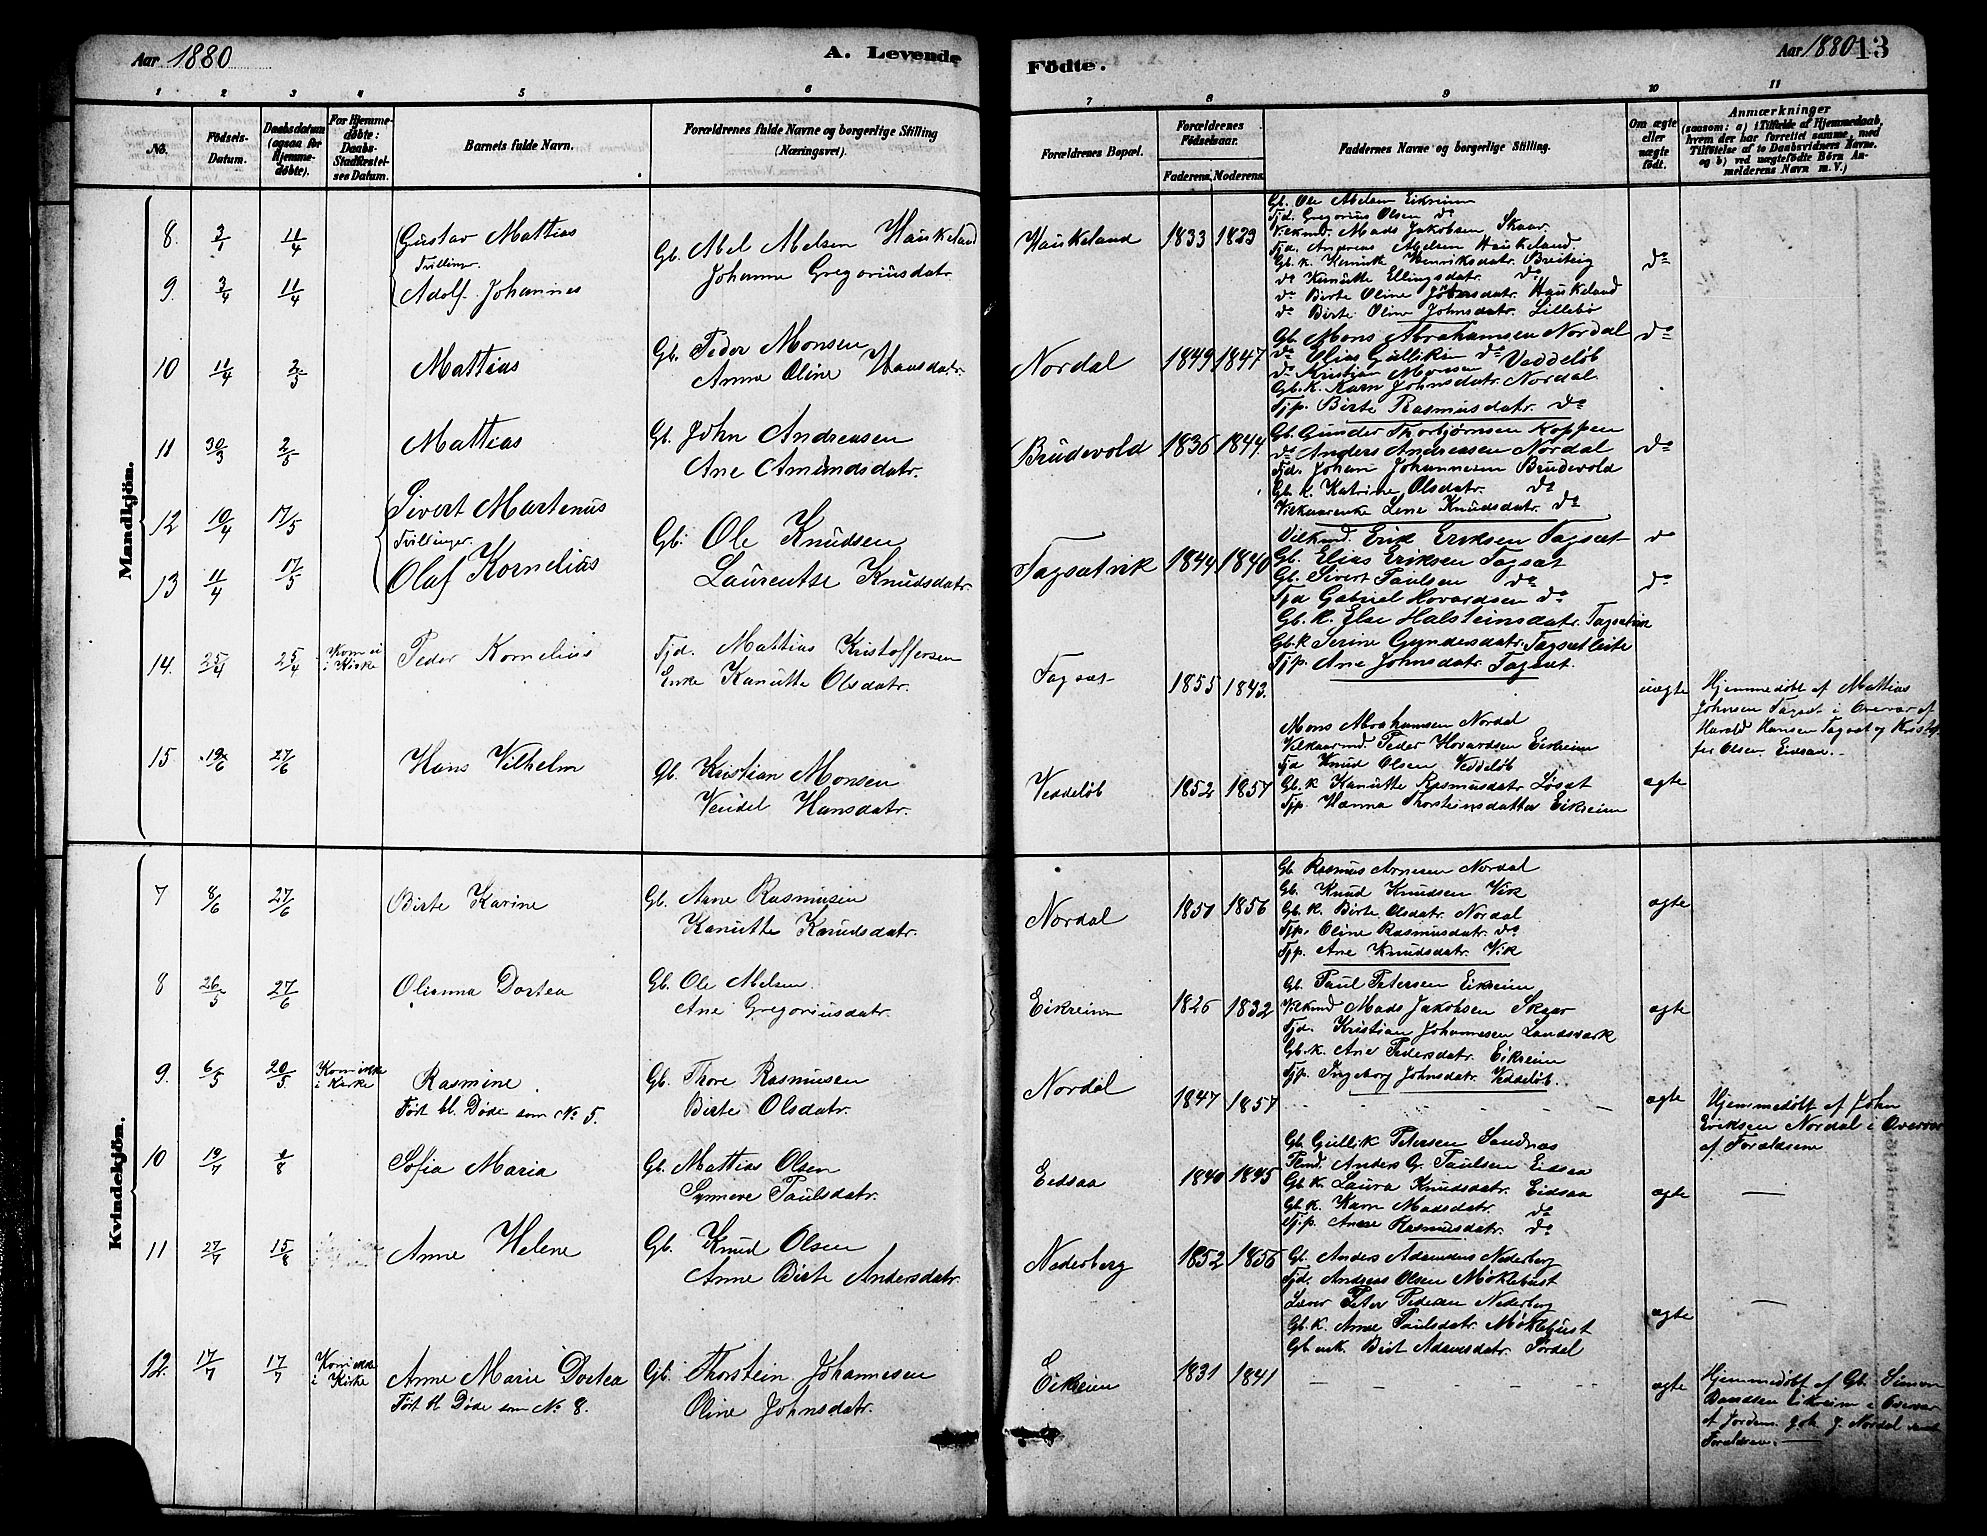 Aar 1880
A. Levende
1 2 3 4 5 6
No.
Fødsels-Datum.
Daabsdatum (ogsaa for Hjemmedøbte).
For Hjemmedøbte: Daabs-Stadfæstelses Datum.
Barnets fulde Navn.
Forældrenes fulde Navne og borgerlige Stilling
(Næringsvei).
Mandkjön.
8. 11/4 Gustav Mattias
Tvillinger.
Gb. Abel Abelsen Haukeland
Johanne Gregoriusdatr.
9. 3/4 11/4 Adolf Johannes
10 11/4 2/5 Mattias
Gb. Peder Monsen
Anne Oline Hansdatr.
11 30/3 2/5 Mattias
Gb. John Andreasen
Ane Amundsdatr.
12 10/4 17/5 Sivert Martenus
Tvillinger.
Gb. Ole Knudsen
13 11/4 17/5 Olaf Kornelius
Laurentse Knudsdatr.
14. 25/4 25/4 Kom ei i Kirke Peder Kornelius
Tjd. Mattias Kristoffersen
Enke Kanutte Olsdatr.
15 27/6 Hans Vilhelm
Gb. Kristian Monsen
Vendel Hansdatr.
Kvindekjön.
7 8/6 27/6 Birte Karine
Gb. Arne Rasmusen
Kanutte Knudsdatr.
8 26/5 27/6 Olianna Dortea
Gb. Ole Abelsen
Ane Gregoriusdatr.
9. 6/5 20/5 Kom ikke i Kirke Rasmine.
Ført bl. Døde som No 5.
Gb. Thore Rasmusen
Birte Olsdatr.
10 19/7 Sofia Maria
Gb. Mattias Olsen
Synneve Paulsdatr.
11 27/7 15/8 Anne Helene
Gb. Knud Olsen
Anne Birte Andersdatr.
12. 17/7 17/7 Kom ikke i Kirke Anne Marie Dortea
Ført bl Døde som No 8.
Gb. Thorstein Johannesen
Oline Johnsdatr.
Födte.
Aar 1880 13
7 8 9 10 11
Forældrenes Bopæl.
Forældrenes Fødselsaar.
Faderens. Moderens.
Faddernes Navne og borgerlige Stilling.
Om ægte eller uægte født.
Anmærkninger
(saasom: a) i Tilfælde af Hjemmedaab, hvem der har forrettet samme, med Tilføielse af to Daabsvidners Navne, og b) ved uægtefødte Børn Anmelderens Navn m. V.)
Haukeland 1833 1829
Gb. Ole Abelsen Eikreim
Tjd. Gregorius Olsen do
Vilkmd. Mads Jakobsen Skaar
Tjd. Andreas Abelsen Haukeland
Gb. k. Kanutte Henriksdatr. Breiteig
do Kanutte Ellingsdatr. do
do Birte Oline Haukeland
do Birte Oline Johnsdatr. Lillebø
do
Nordal 1849 1847
Gb. Mons Abrahamsen Nordal
do Elias Gulliksen do Veddeløb
do Kristian Monsen
Gb. k. Karn Johnsdatr. Nordal
Tjp. Birte Rasmusdatr. do
do
Brudevold 1836 1844
Gb. Gunder Thorbjørnsen Koppen
do Anders Andreasen Nordal
Tjd. Johan Johannesen Brudevold
Gb. k. Katrine Olsdatr. do
Vilkaarenke Lene Knudsdatr. do
do
Tagsatvik 1844 1840
Vilkmd. Erik Eriksen Tagsæt
Gb. Elias Eriksen Tagsæt
Gb. Sivert Paulsen do
Tjd Gabriel Hovardsen do
Gb. K. Else Halsteinsdatr. Tagsatvik
Gb. k Serine Gundesdatr. Tagsatleite
Tjp. Ane Johnsdatr. Tagsæt.
do
do
Tagsæt 1855 1843.
uægte
Hjemmedøbt af Mattias
Johnsen Tagsæt i Overvær af
Harald Hansen Tagsæt og Kristof
fer Olsen Eidsaa.
Veddeløb 1852 1857
Mons Abrahamsen Nordal
Vilkaarmd. Peder Hovardsen Eikreim
Tjd Knud Olsen Veddeløb
Gb. k Kanutte Rasmusdatr Løsæt
Tjp. Hanna Thorsteinsdatter Eikreim
ægte
Nordal 1851 1856
Gb Rasmus Arnesen Nordal
Gb. Knud Knudsen Vik
Gb. k. Birte Olsdatr. Nordal
Tjp. Oline Rasmusdatr. do
Tjp. Ane Knudsdatr. Vik
ægte
Eikreim 1825 1832
Gb. Paul Petersen Eikreim
Vilkmd Mads Jakobsen Skaar
Tjd. Kristian Johannesen Landsværk
Gb. k. Ane Pedersdatr. Eikreim
Tjp. Ingeborg Johnsdatr. Veddeløb.
ægte
Nordal 1847 1857
ægte
Hjemmedøbt af John
Eriksen Nordal i Overvær
af Forældrene
Eidsaa 1840 1845
Gb. Gullik Petersen Sandnæs
Anders Gr. Paulsen Eidsaa
Gb. k. Laura Knudsdatr. Eidsaa
Gb. k. Karn Madsdatr. do
Tjp. Anne Rasmusdatr. do
ægte
Nederberg 1852 1856
Gb. Anders Adamsen Nederberg
Tjd. Andreas Olsen Møklebust
Lærer Peter Pedersen Nederberg
Gb. k. Anne Paulsdatr. Møklebust
Gb. enk. Birt Adamsdatr. Sørdal
ægte
Eikreim 1831 1841
ægte
Hjemmedøbt af Gb. Simon
Eikreim i Overvær
af Jordem. Joh. J. Nordal samt
Forældrene.